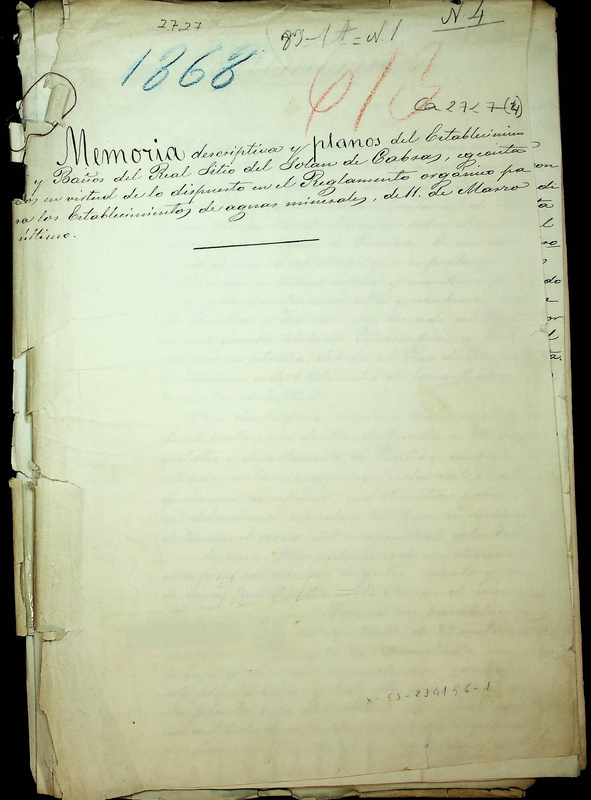 2727
N 4
83-1A=N1
1868
613
Ca 2727 (4)
Memoria descriptiva y planos del Establecimien
y Baños del Real Sitio del Solan de Cabras, ejecuta
dos en virtud de lo dispuesto en el Reglamento orgánico pa
ra los Establecimientos de aguas minerales, de 11. de Marzo
último.
x-53-234196-1